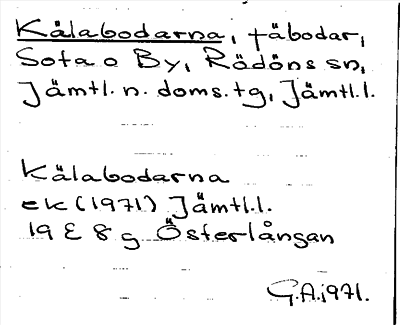 Kålabodarna, fäbodar,
Sota o By, Rödöns sn,
Jämtl. n. doms. tg, Jämtl. l.
Kålabodarna
ek (1971) Jämtl. l.
19 E 8 g Österlångan
G.A. 1971.